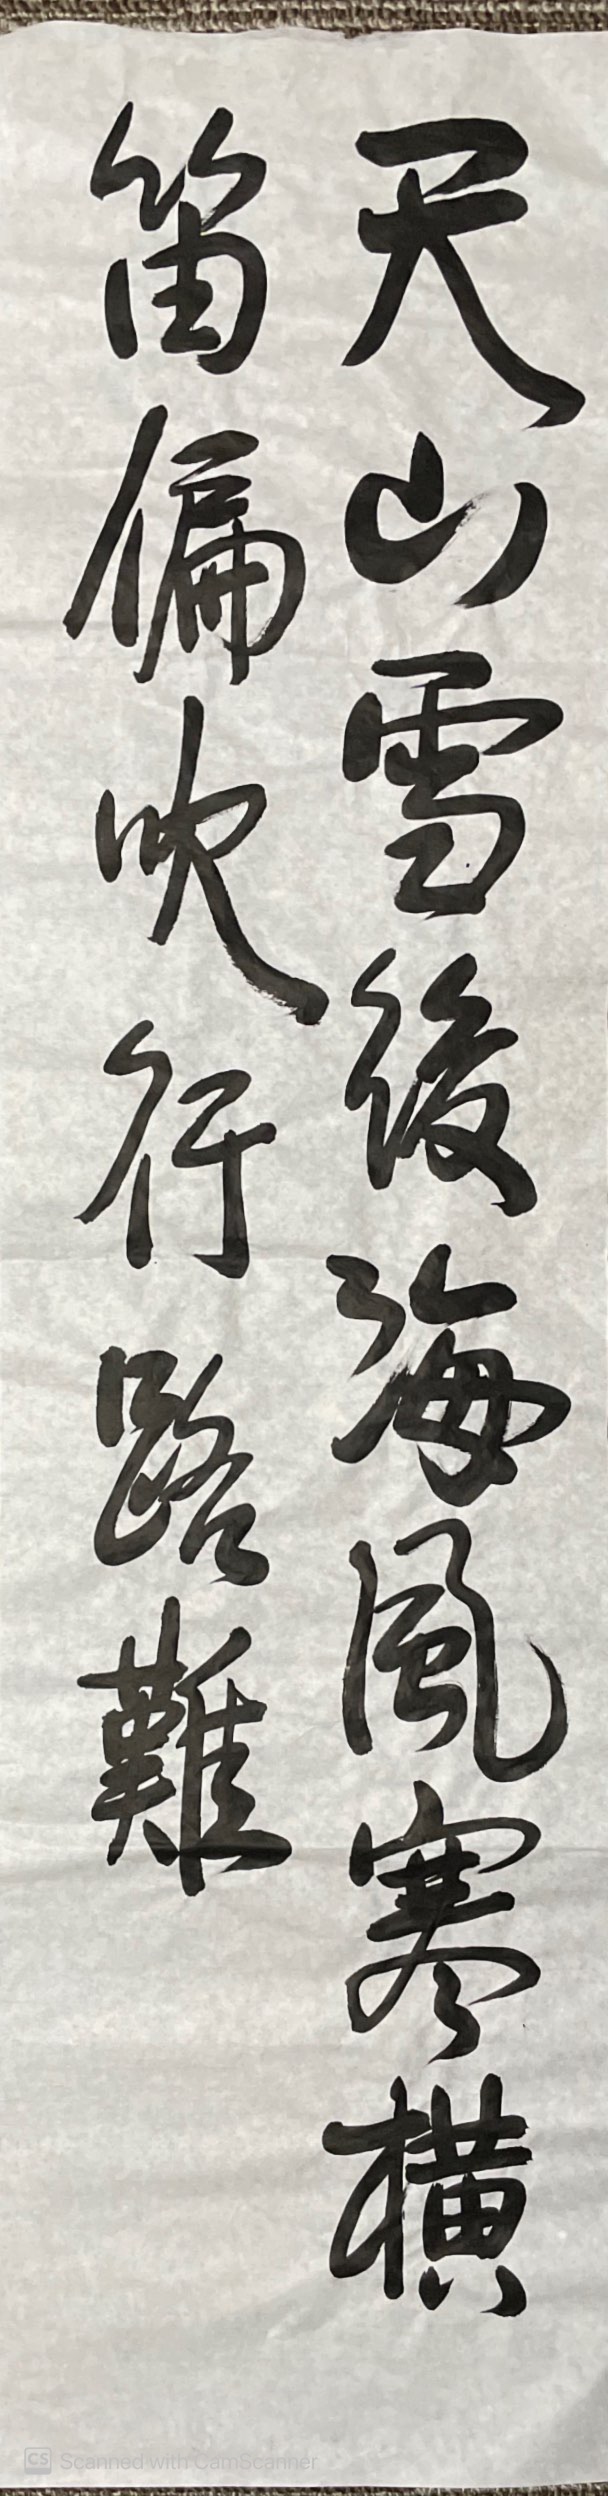 天山雪後海風寒横
笛偏吹行路難
CS Scanned with CamScanner